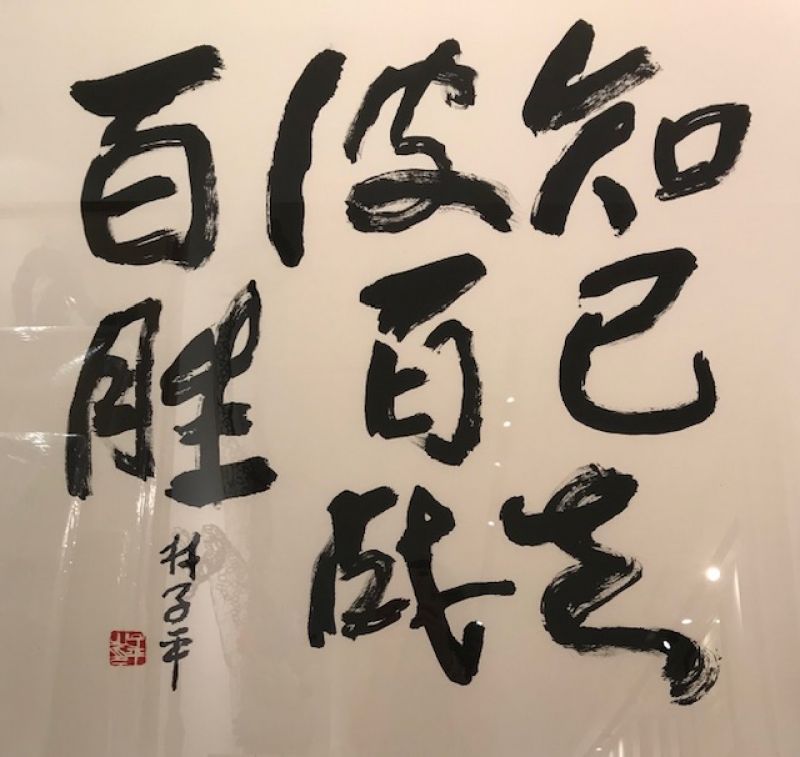 知己知
彼百战
百胜
林子平